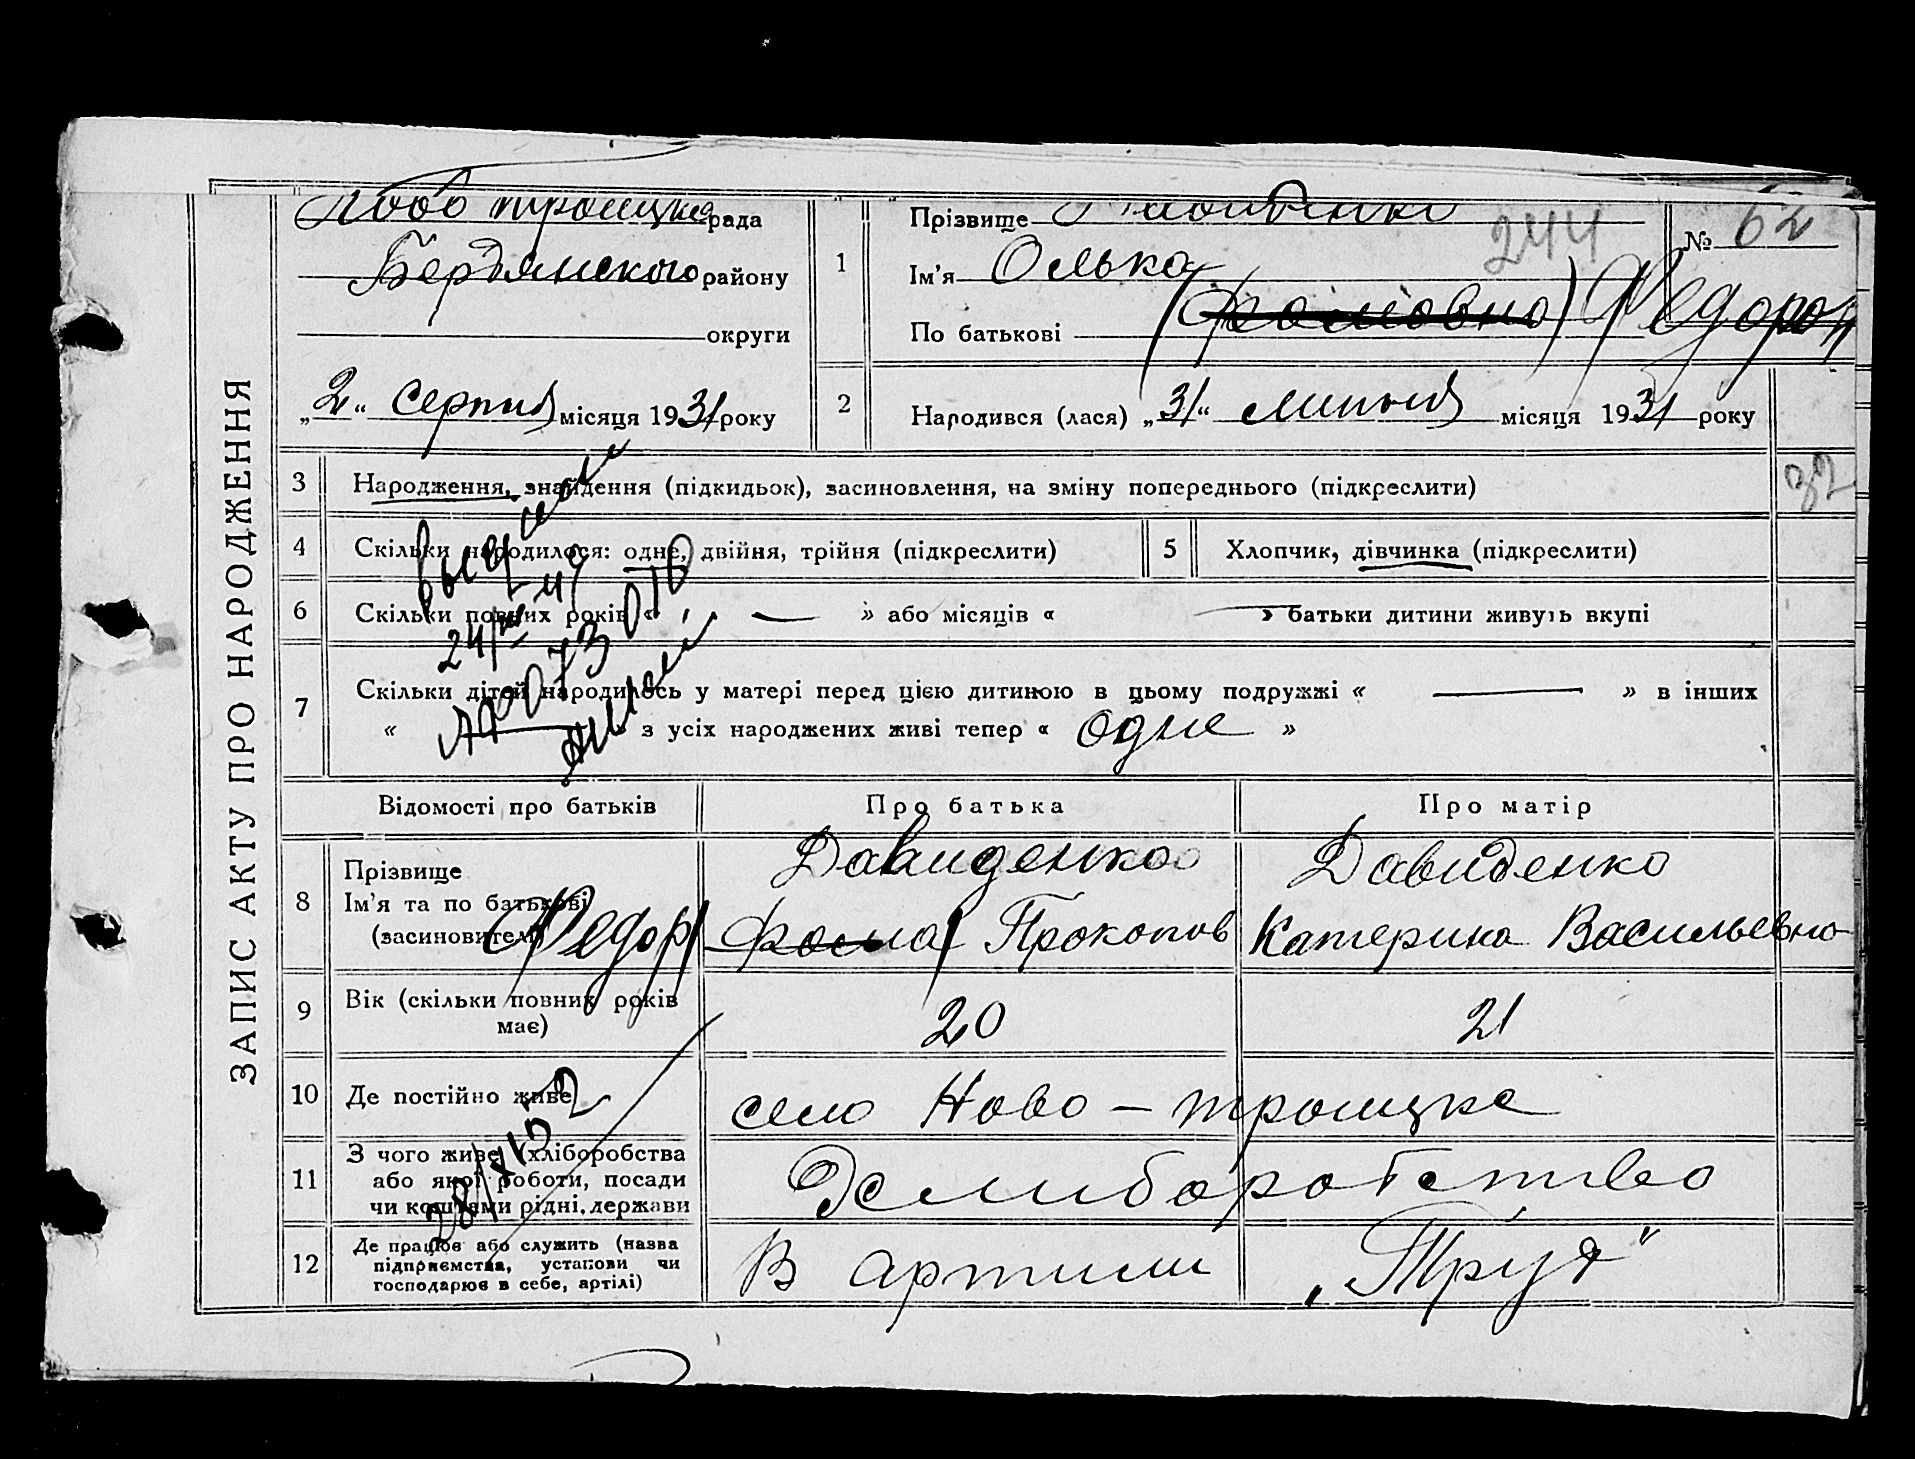 ЗАПИС АКТУ ПРО НАРОДЖЕННЯ
Ново троицька рада
Бердянского району
округи
„2“ серпня місяця 1931 року
1 Прізвище
244
№ 62
Ім'я Олька
По батькові (Фомовна) Федоров
2 Народився (лася) „31“ липня місяця 1931 року
3 Народження, знайдення (підкидьок), засиновлення, на зміну попереднього (підкреслити)
32
4 Скільки народилося: одне, двійня, трійня (підкреслити)
5 Хлопчик, дівчинка (підкреслити)
6 Скільки повних років « — » або місяців « — » батьки дитини живуть вкупі
7 Скільки дітей народилось у матері перед цією дитиною в цьому подружжі « — » в інших
« — » з усіх народжених живі тепер « одне »
Відомості про батьків Про батька Про матір
8 Прізвище
Ім'я та по батькові
(засиновителі)
Давиденко
Федор (Фома) Прокопов
Давиденко
Катерина Васильевна
9 Вік (скільки повних років
має)
20 21
10 Де постійно живе
село Ново — троицке
11 З чого живе (хліборобства
або якої роботи, посади
чи коштами рідні, держави
28/XI 52
12 Де працює або служить (назва
підприємства, установи чи
господарює в себе, артілі)
В артили „Труд“